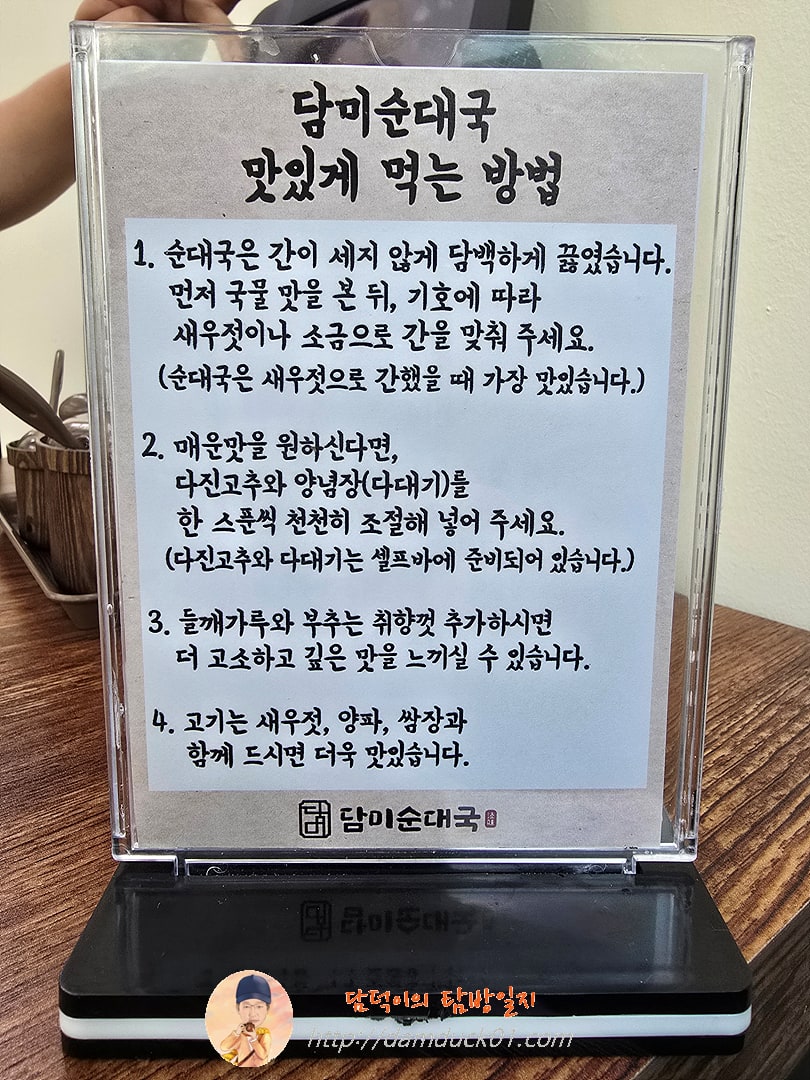 담미순대국
맛있게 먹는 방법
1. 순대국은 간이 세지 않게 담백하게 끓였습니다.
먼저 국물 맛을 본 뒤, 기호에 따라
새우젓이나 소금으로 간을 맞춰 주세요.
(순대국은 새우젓으로 간했을 때 가장 맛있습니다.)
2. 매운맛을 원하신다면,
다진고추와 양념장(다대기)를
한 스푼씩 천천히 조절해 넣어 주세요.
(다진고추와 다대기는 셀프바에 준비되어 있습니다.)
3. 들깨가루와 부추는 취향껏 추가하시면
더 고소하고 깊은 맛을 느끼실 수 있습니다.
4. 고기는 새우젓, 양파, 쌈장과
함께 드시면 더욱 맛있습니다.
담미순대국
담덕이의 탐방일지
http://damduck01.com